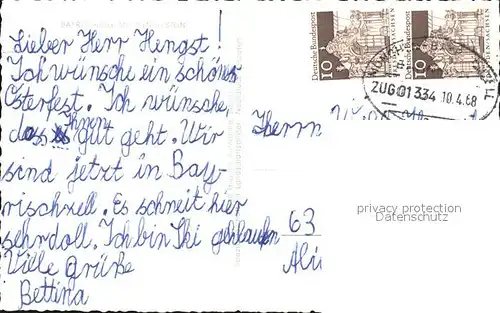 Lieber Herr Hengst!
Ich wünsche ein schönes
Osterfest. Ich wünsche,
dass Ihnen gut geht. Wir
sind jetzt in Bay-
rischzell. Es schneit hier
sehrdoll. Ich bin Ski gelaufen
Ville Grüße
Bettina
Herrn
63
10 Deutsche Bundespost
10 Deutsche Bundespost
ZUG 01334 10.4.68
privacy protection
Datenschutz